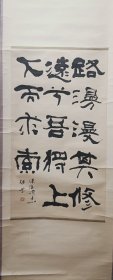 路漫漫其修
远兮吾将上
下而求索